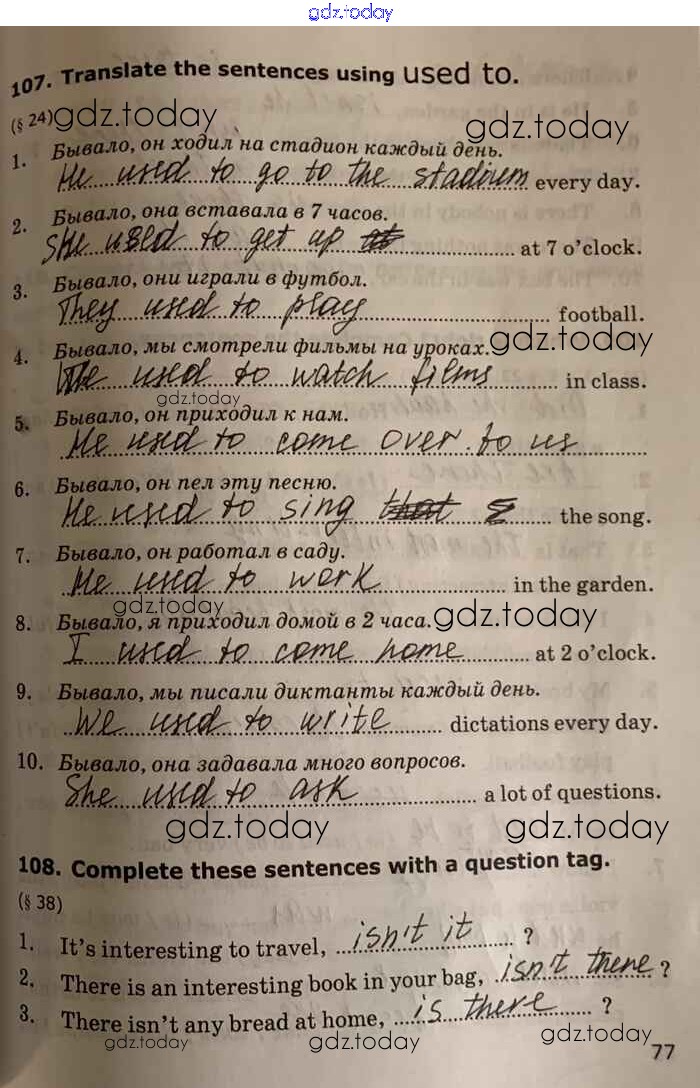 gdz.today
107. Translate the sentences using used to.
(§ 24) gdz.today gdz.today
1. Бывало, он ходил на стадион каждый день.
He used to go to the stadium every day.
2. Бывало, она вставала в 7 часов.
She used to get up at at 7 o'clock.
3. Бывало, они играли в футбол.
They used to play football.
4. Бывало, мы смотрели фильмы на уроках. gdz.today
We used to watch films in class.
gdz.today
5. Бывало, он приходил к нам.
He used to come over to us
6. Бывало, он пел эту песню.
He used to sing that the song.
7. Бывало, он работал в саду.
He used to work in the garden.
gdz.today
8. Бывало, я приходил домой в 2 часа. gdz.today
I used to come home at 2 o'clock.
9. Бывало, мы писали диктанты каждый день.
We used to write dictations every day.
10. Бывало, она задавала много вопросов.
She used to ask a lot of questions.
gdz.today gdz.today
108. Complete these sentences with a question tag.
(§ 38)
1. It's interesting to travel, isn't it ?
2. There is an interesting book in your bag, isn't there ?
3. There isn't any bread at home, is there ?
gdz.today gdz.today gdz.today
77